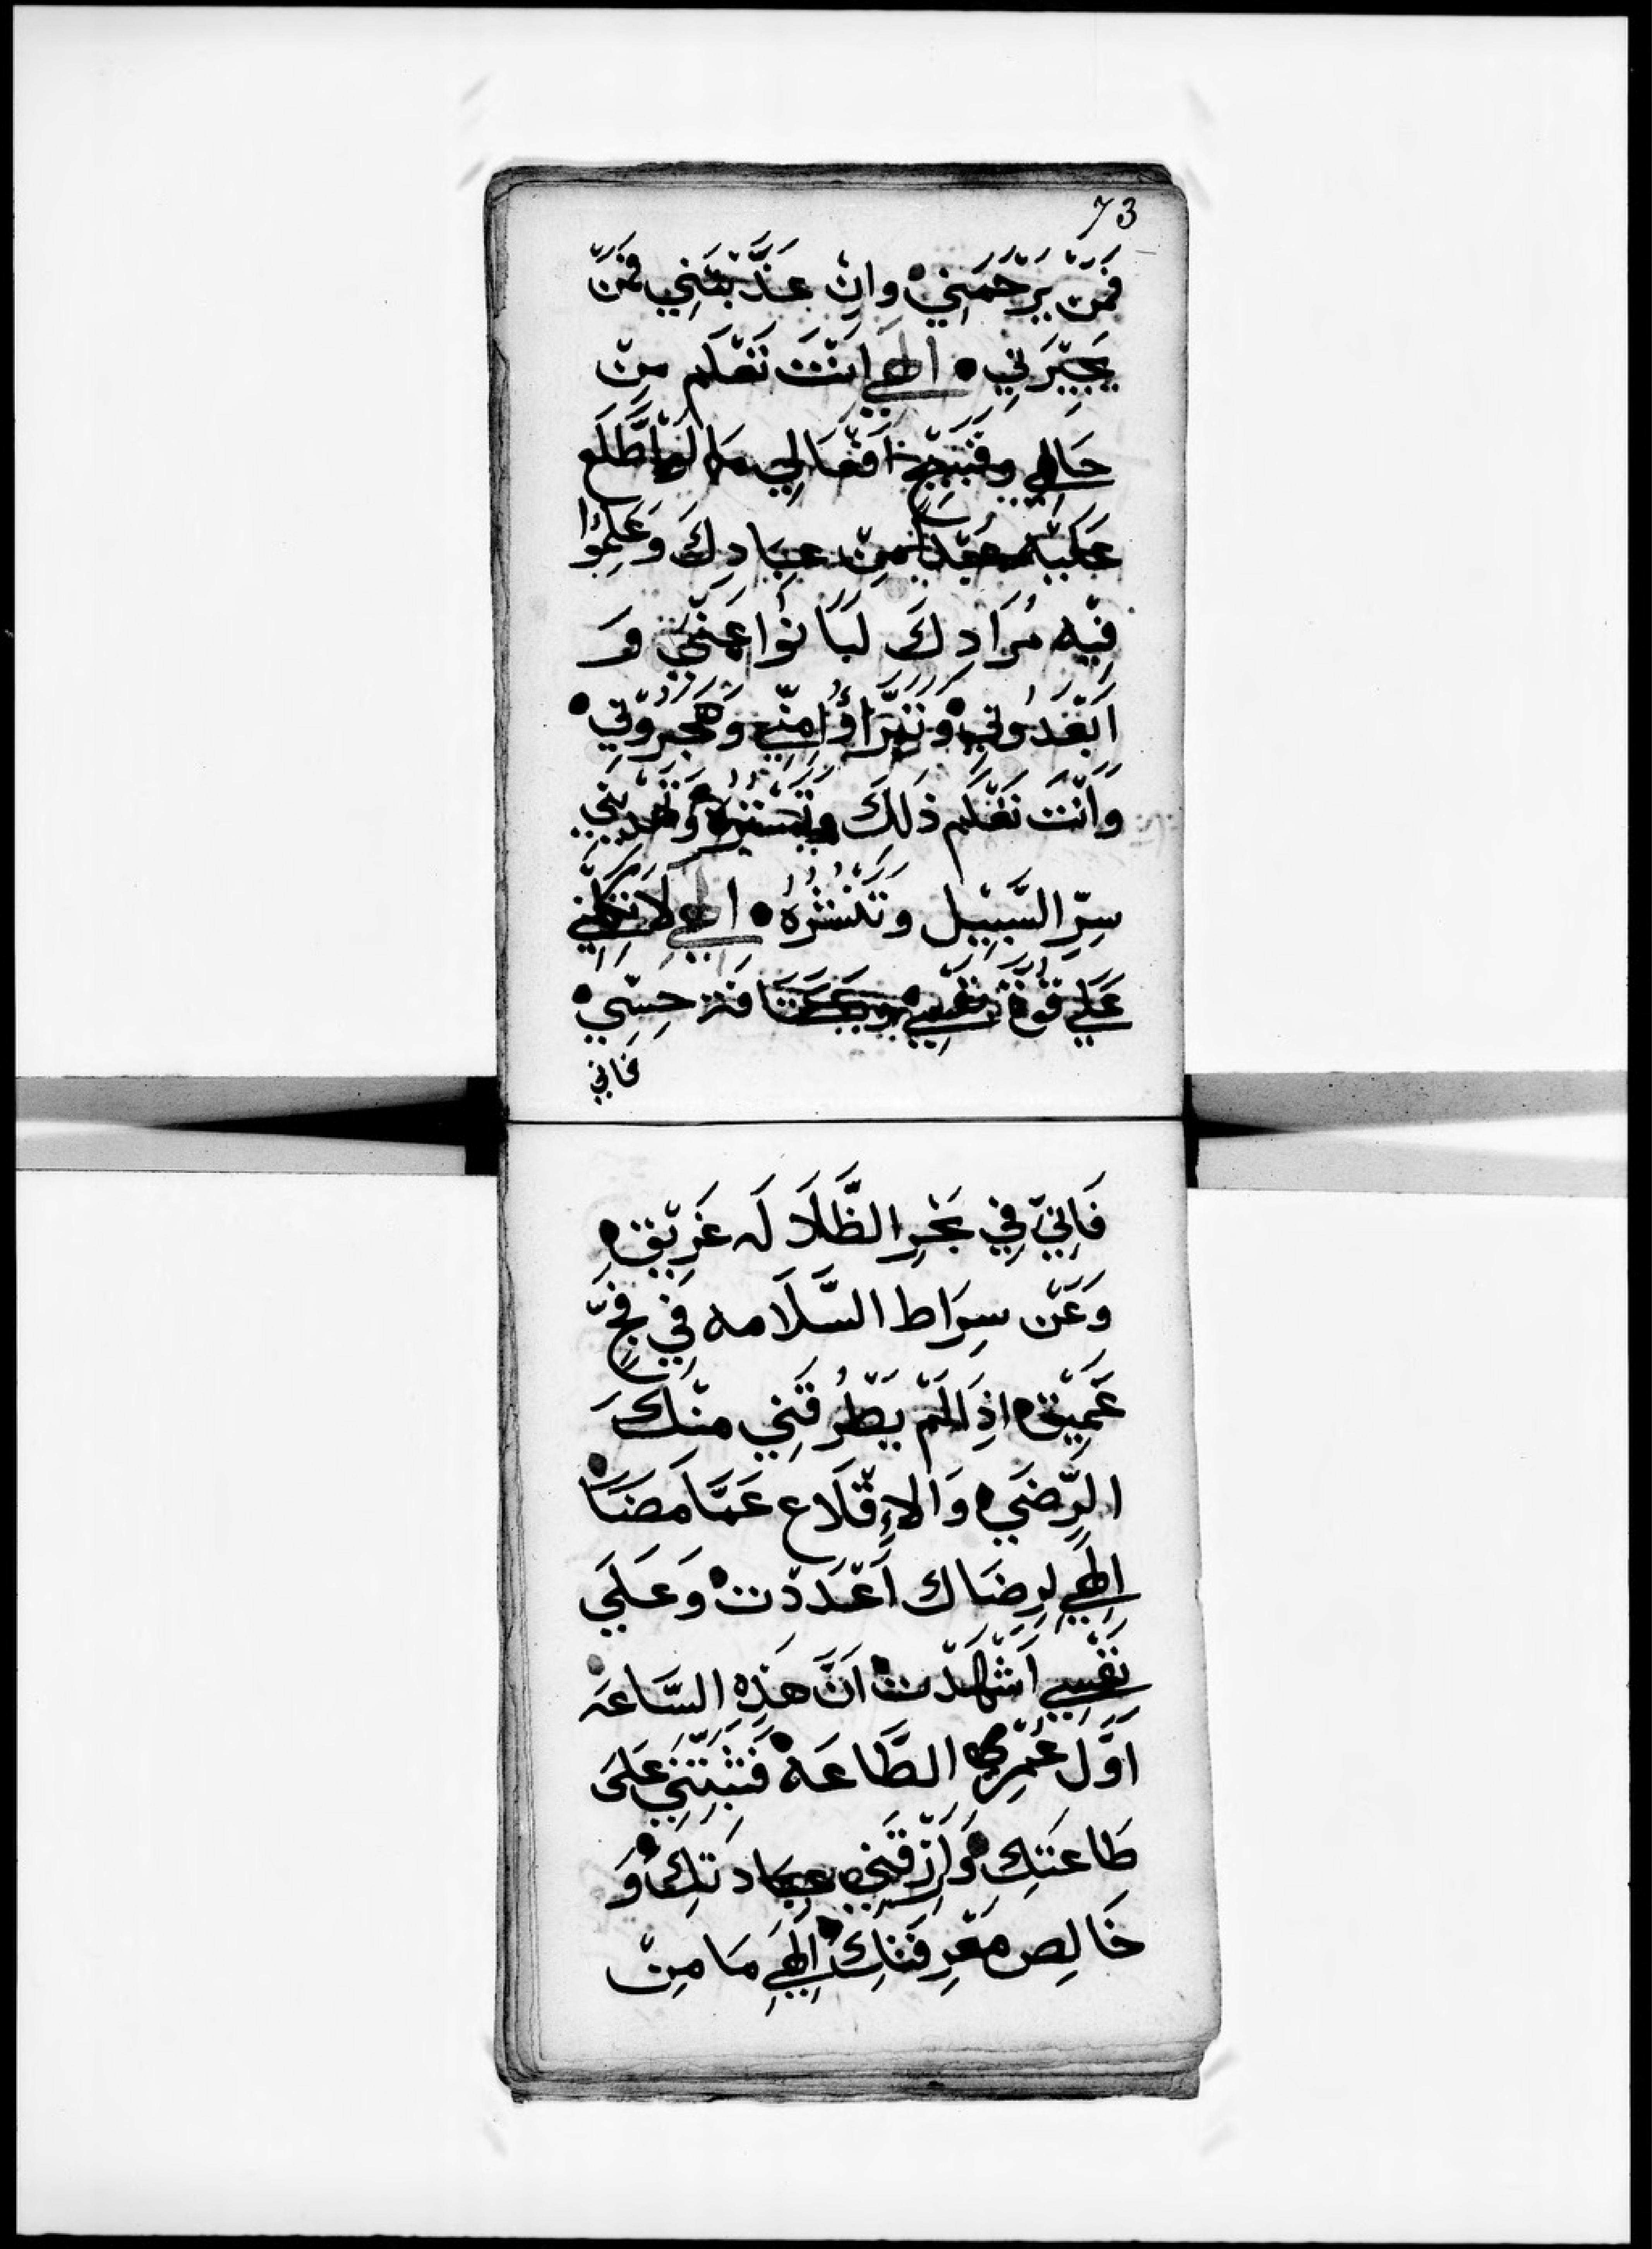 73
فَمَنْ يَرْحَمَنِيْ وَاِنْ عَذَّبْتَنِي فَمَنْ
يَجِيْرَنِي • الهي اَنْتَ تَعْلَم مِنْ
حَالِي وقَبِيْح اَفْعَالِي مَا لَو اِطَّلَع
عَلَيْه مِنْ عِبَادِكَ وَعَلِمُوا
فِيْه مُرَادِكَ لَبَانوا عَنِّي وَ
اَبْعَدُونِي وتَبَرَّاؤُا مِنِّي وَهَجَرُوْنِي
وَاَنْتَ تَعْلَم ذَلِكَ وتَسْتُرُهُ وَتهْدِيْنِي
سِرّ السَّبِيْل وَتَنْشُرُهُ • الهي لَا تَكِلْنِي
عَلَي قُوَّة نَفْسِي حِسِّي
فَاني
فَاِنِيّ فِي بَحْرِ الظَّلَالَه غَرِيْق
وَعَنْ سِرَاط السَّلَامه فِي فَجّ
عَمِيْق اِذَا لَمْ يَطْرُقَنِي مِنْكَ
الرِّضَي وَالاِقْلَاع عَمَّا مَضَا
اِلهِي لِرِضَاك اَعْدَدْت وَعَلَي
نَفْسِي اَشْهَدْت اَنَّ هَذِهِ السَّاعَه
اَوَّل عُمْرِي الطَّاعَة فَثَبِّتْنِي عَلَي
طَاعَتِكَ وَارْزِقْنِي عِبَادتكَ وَ
خَالِص مَعْرِفَتِكَ اِلهِي مَا مِنْ